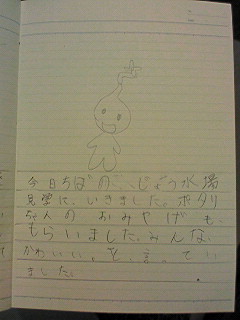 今日ちばのじょう水場
見学に、いきました。ポタリ
ちゃんのおみやげも、
もらいました。みんな、
かわいい、と、言ってい
ました。